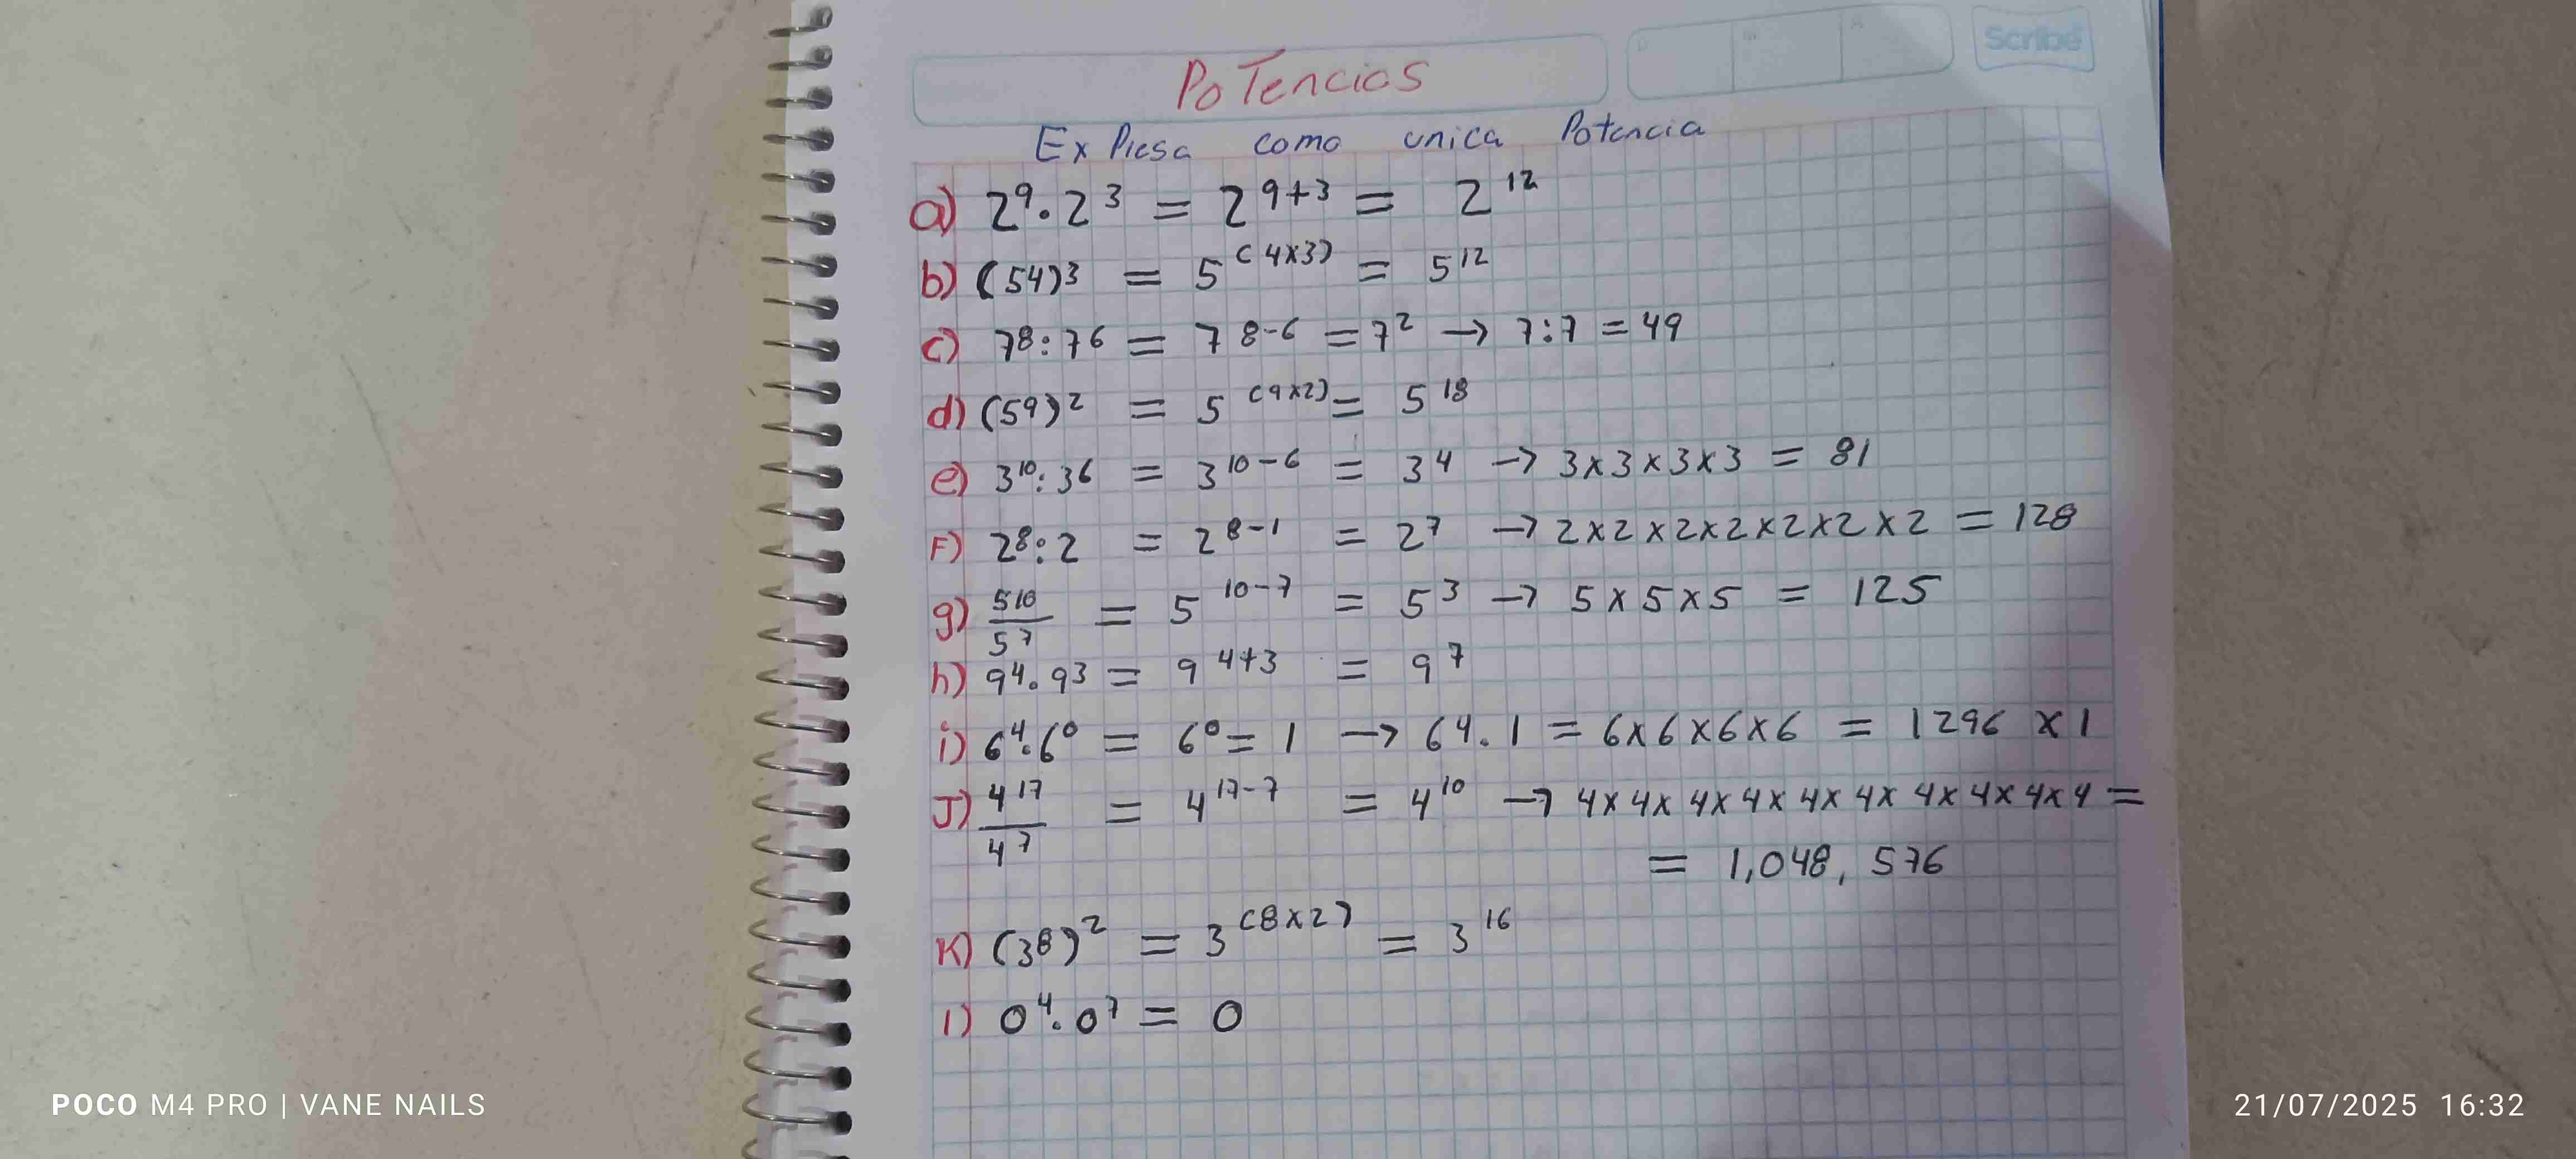 Scribe
PoTencias
Ex Presa como unica Potencia
a) 2⁹·2³ = 2⁹⁺³ = 2¹²
b) (54)³ = 5⁽⁴ˣ³⁾ = 5¹²
c) 7⁸:7⁶ = 7⁸⁻⁶ = 7² → 7:7 = 49
d) (5⁹)² = 5⁽⁹ˣ²⁾ = 5¹⁸
e) 3¹⁰:3⁶ = 3¹⁰⁻⁶ = 3⁴ → 3x3x3x3 = 81
F) 2⁸:2 = 2⁸⁻¹ = 2⁷ → 2x2x2x2x2x2x2 = 128
g) 5¹⁰/5⁷ = 5¹⁰⁻⁷ = 5³ → 5x5x5 = 125
h) 9⁴·9³ = 9⁴⁺³ = 9⁷
i) 6⁴·6⁰ = 6⁰ = 1 → 6⁴·1 = 6x6x6x6 = 1296 x1
J) 4¹⁷/4⁷ = 4¹⁷⁻⁷ = 4¹⁰ → 4x4x4x4x4x4x4x4x4x4 =
= 1,048,576
K) (3⁸)² = 3⁽⁸ˣ²⁾ = 3¹⁶
l) 0⁴·0⁷ = 0
POCO M4 PRO | VANE NAILS
21/07/2025 16:32